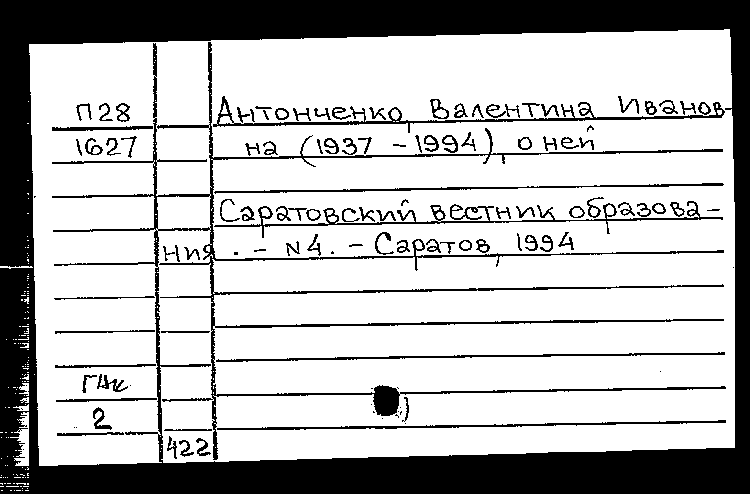 П28 Антонченко, Валентина Иванов-
1627 на (1937 - 1994), о ней
Саратовский вестник образова-
ния. - N4. - Саратов, 1994
2
422